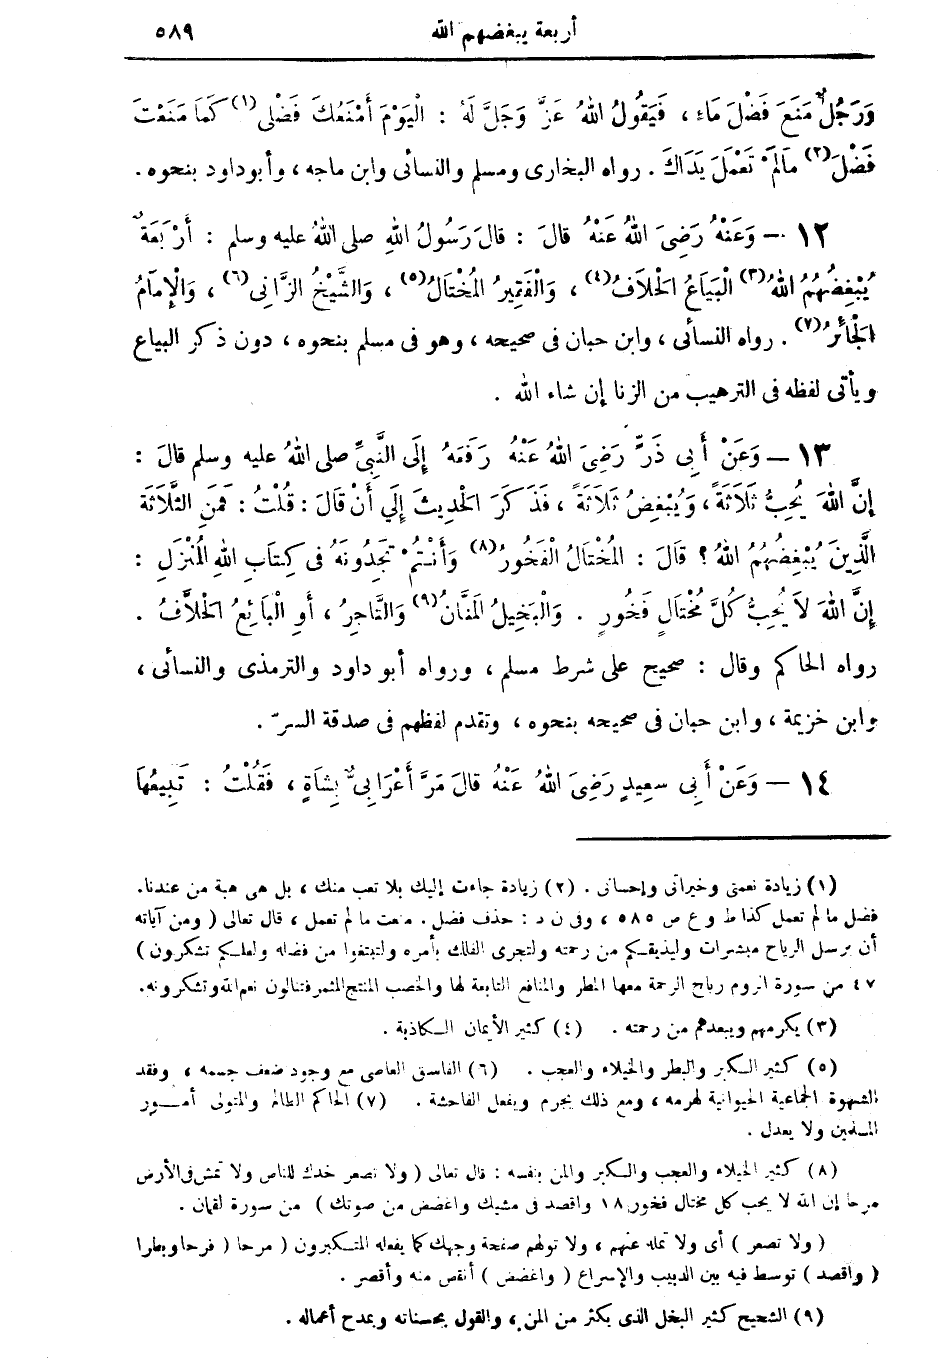 أربعة يبغضهم الله ٥٨٩
وَرَجُلٌ مَنَعَ فَضْلَ مَاء ، فَيَقُولُ اللهُ عَزَّ وَجَلَّ لَهُ : الْيَوْمَ أَمْنَعُكَ فَضْلِى (١) كَمَا مَنَعْتَ
فَضْلَ (٢) مَالَمْ تَعْمَلْ يَدَاكَ . رواه البخارى ومسلم والنسائى وابن ماجه ، وأبو داود بنحوه .
١٢ — وَعَنْهُ رَضِىَ اللهُ عَنْهُ قالَ : قالَ رَسُولُ اللهِ صلى اللهُ عليه وسلم : أَرْبَعَةٌ
يُبْغِضُهُمُ اللهُ (٣) الْبَيَاعُ الْحَلَّافُ (٤) ، وَالْفَقِيرُ الْمُخْتَالُ (٥) ، وَالشَّيْخُ الزَّانِى (٦) ، وَالْإِمَامُ
الْجَائِرُ (٧) . رواه النسائى ، وابن حبان فى صحيحه ، وهو فى مسلم بنحوه ، دون ذكر البياع
ويأتى لفظه فى الترهيب من الزنا إن شاء الله .
١٣ — وَعَنْ أَبِى ذَرٍّ رَضِىَ اللهُ عَنْهُ رَفَعَهُ إِلَى النَّبِىِّ صلى اللهُ عليه وسلم قالَ :
إِنَّ اللهَ يُحِبُّ ثَلَاثَةً ، وَيُبْغِضُ ثَلَاثَةً ، فَذَكَرَ الْحَدِيثَ إِلَي أَنْ قَالَ : قُلْتُ : فَمَنِ الثَّلَاثَة
الَّذِينَ يُبْغِضُهُمُ اللهُ ؟ قالَ : الْمُخْتَالُ الْفَخُورُ (٨) وَأَنْتُمْ تَجِدُونَهُ فى كِتَابِ اللهِ الْمُنْزَلِ :
إِنَّ اللهَ لَا يُحِبُّ كُلَّ مُخْتَالٍ فَخُورٍ . وَالْبَخِيلُ الْمَنَّانُ (٩) وَالتَّاجِرُ ، أَوِ الْبَائِعُ الْحَلَّافُ .
رواه الحاكم وقال : صحيح على شرط مسلم ، ورواه أبو داود والترمذى والنسائى ،
وابن خزيمة ، وابن حبان فى صحيحه بنحوه ، وتقدم لفظهم فى صدقة السرّ .
١٤ — وَعَنْ أَبِى سعِيدٍ رَضِىَ اللهُ عَنْهُ قالَ مَرَّ أَعْرَابِىٌّ بِشَاةٍ ، فَقُلْتُ : تَبِيعُهَا
(١) زيادة نعمتى وخيراتى وإحسانى . (٢) زيادة جاءت إليك بلا تعب منك ، بل هى هبة من عندنا.
فضل ما لم تعمل كذا ط و ع ص ٥٨٥ ، وفى ن د : حذف فضل . منعت ما لم تعمل ، قال تعالى ( ومن آياته
أن يرسل الرياح مبشرات وليذيقكم من رحمته ولتجرى الفلك بأمره ولتبتغوا من فضله ولعلكم تشكرون )
٤٧ من سورة الروم رياح الرحمة معها المطر والمنافع التابعة لها والخصب المنتج المثمر فتنالون نعم الله وتشكرونه.
(٣) يكرمهم ويبعدهم من رحمته . (٤) كثير الأيمان الكاذبة .
(٥) كثير الكبر والبطر والخيلاء والعجب . (٦) الفاسق العاصى مع وجود ضعف جسمه ، وفقد
الشهوة الجماعية الحيوانية لهرمه ، ومع ذلك يجرم ويفعل الفاحشة . (٧) الحاكم الظالم والمتولى أمور
المسلمين ولا يعدل .
(٨) كثير الخيلاء والعجب والكبر والمن بنفسه : قال تعالى ( ولا تصعر خدك للناس ولا تمش فى الأرض
مرحا إن الله لا يحب كل مختال فخور ١٨ واقصد فى مشيك واغضض من صوتك ) من سورة لقمان .
( ولا تصعر ) أى ولا تمله عنهم ، ولا تولهم صفحة وجهك كما يفعله المتكبرون ( مرحا ( فرحا وبطرا
( واقصد ) توسط فيه بين الدبيب والإسراع ( واغضض ) أنقص منه وأقصر .
(٩) الشحيح كثير البخل الذى يكثر من المن ، والقول بحسناته ويمدح أعماله .